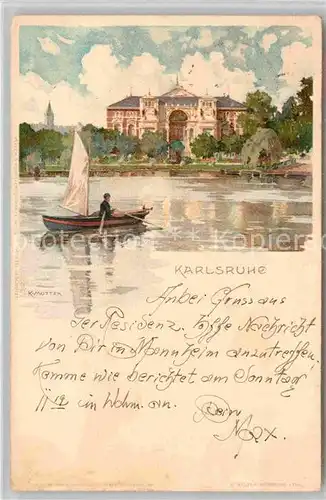 KARLSRUHE
K. MUTTER
Anbei Gruss aus
der Residenz. Hoffe Nachricht
von Dir in Mannheim anzutreffen,
Komme wie berichtet am Sonntag
im Wohm. an.
Dein
Max.